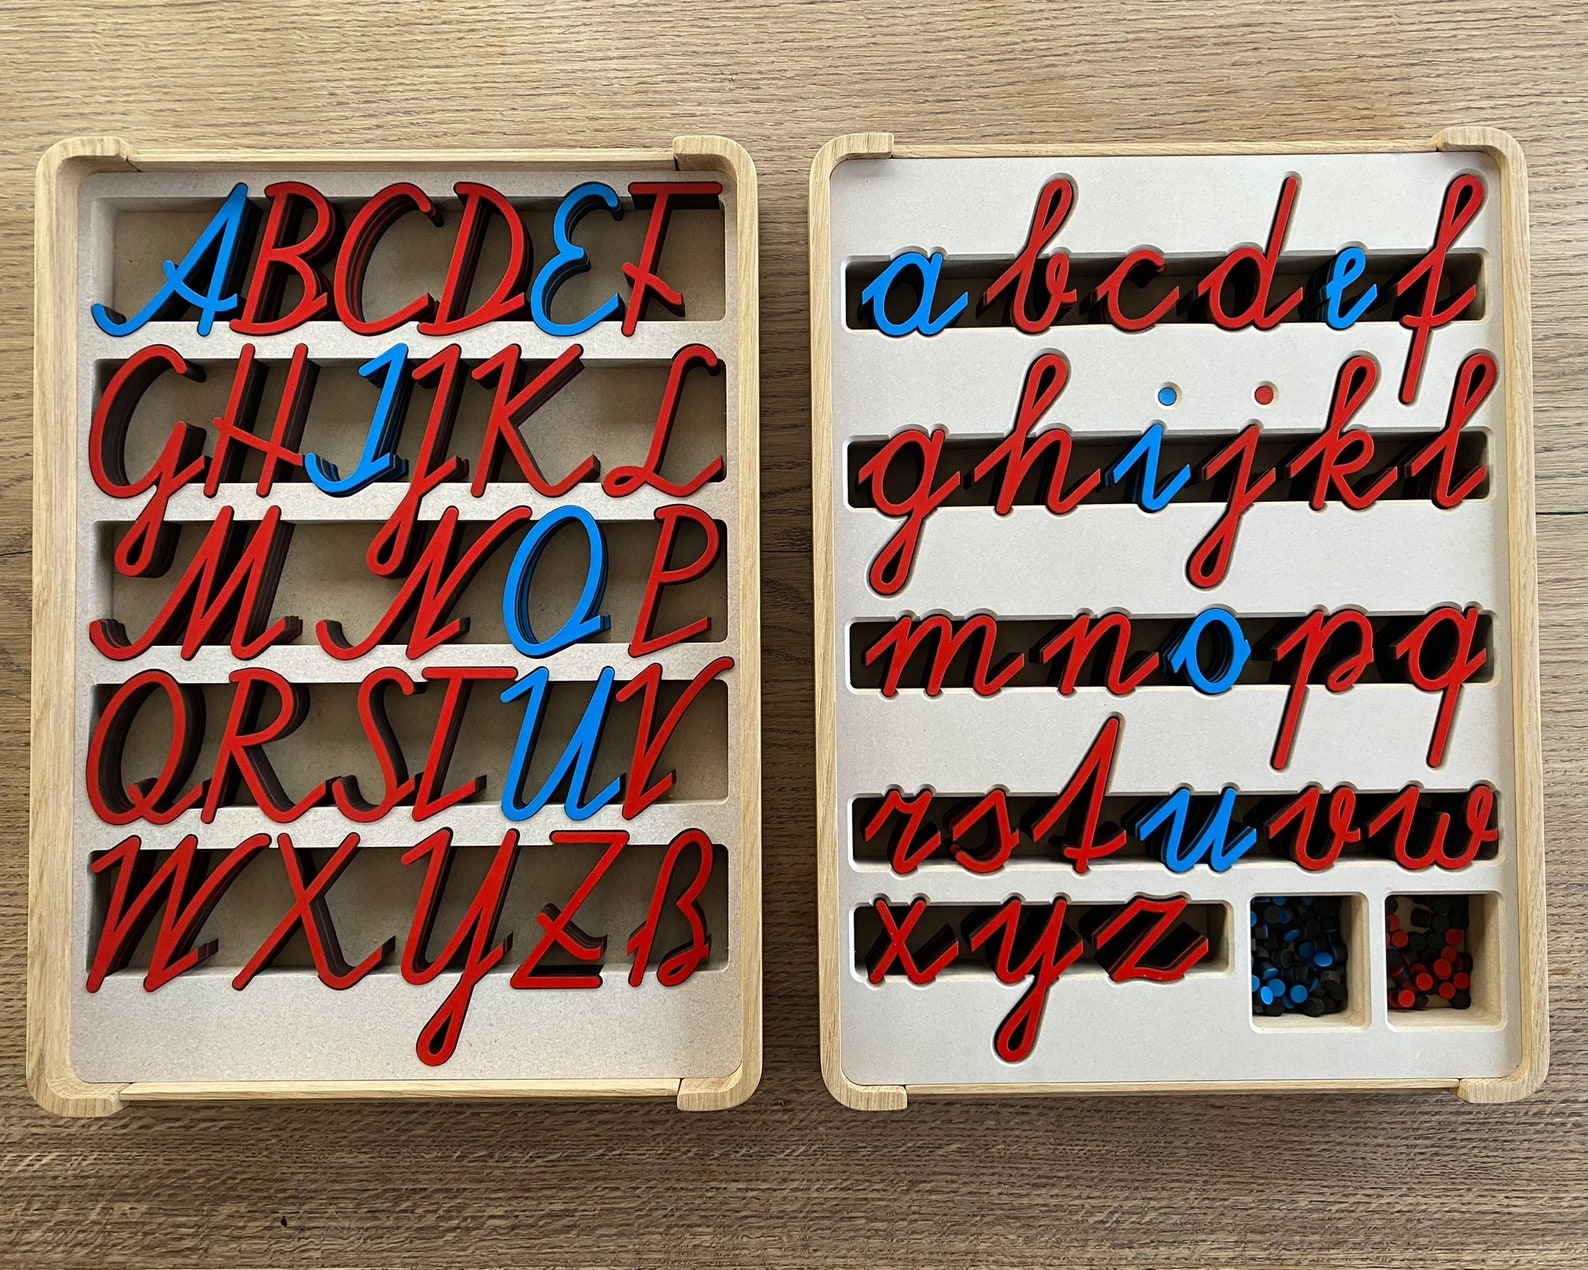 A B C D E F
G H I J K L
M N O P
Q R S T U V
W X Y Z ẞ
a b c d e f
g h i j k l
m n o p q
r s t u v w
x y z